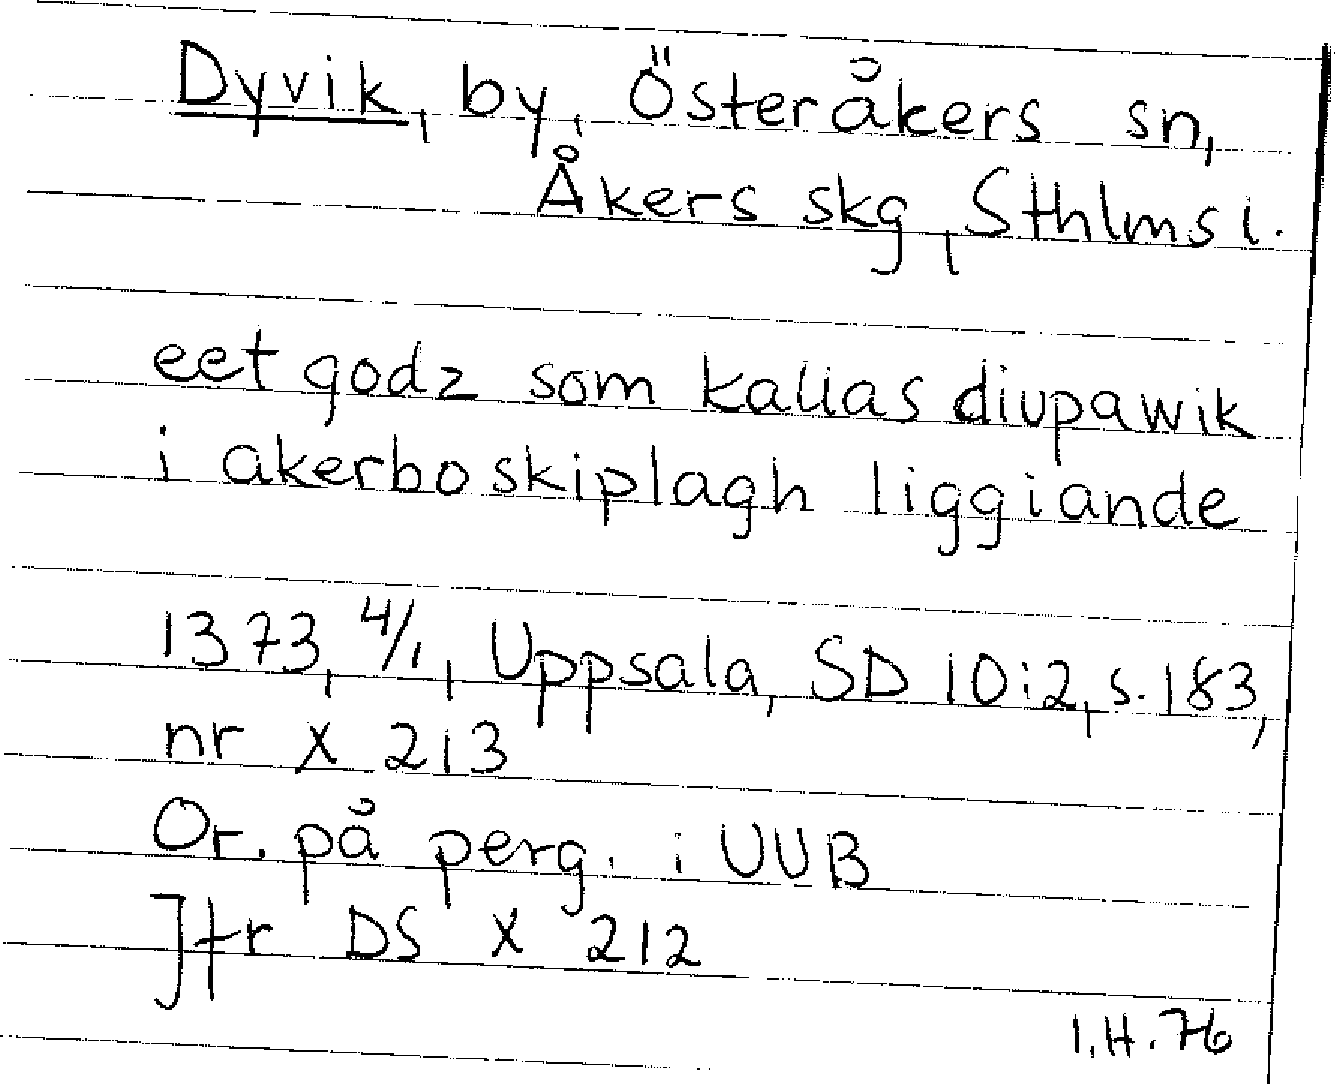 Dyvik, by, Österåkers sn,
Åkers skg, Sthlms l.
eet godz som kallas diupawik
i akerbo skiplagh liggiande
1373, 4/1, Uppsala, SD 10:2, s. 183,
nr X 213
Or. på perg. i UUB
Jfr DS X 212
I.H. 76